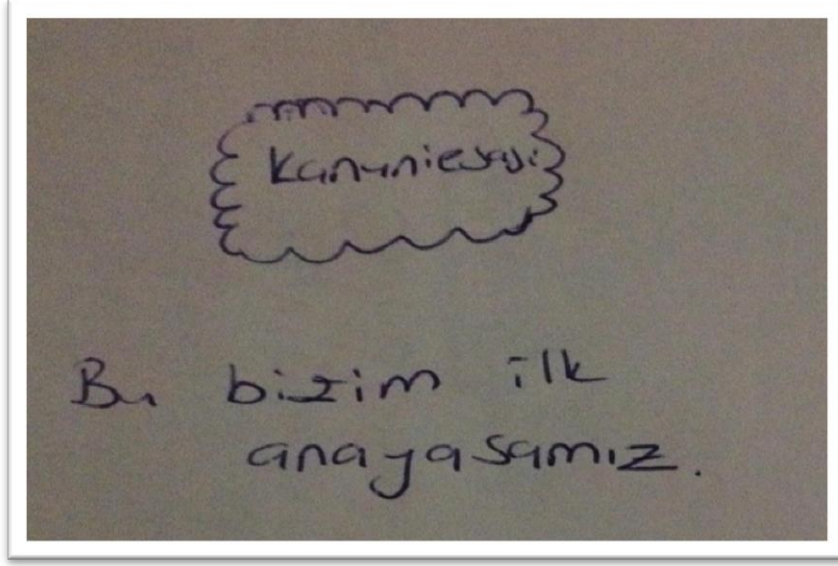 Kanuniesasi
Bu bizim ilk
anayasamız.